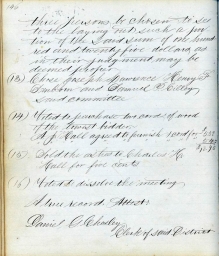 three persons be chosen to see
to the laying out such a por
tion of the said sum of one hund
red and twenty five dollars as
in their judgment may be
deemed proper
(13) Chose Lawrence Henry F
Dubborn and Samuel P. Colby
said committee
(14) Voted to purchase two cords of wood
of the lowest bidder
A J Hall agreed to furnish
(15) Sold the ashes to Charles H.
Hall for five cents
(16) Voted to dissolve the meeting
A true record Attest
Daniel C
Clerk of said District